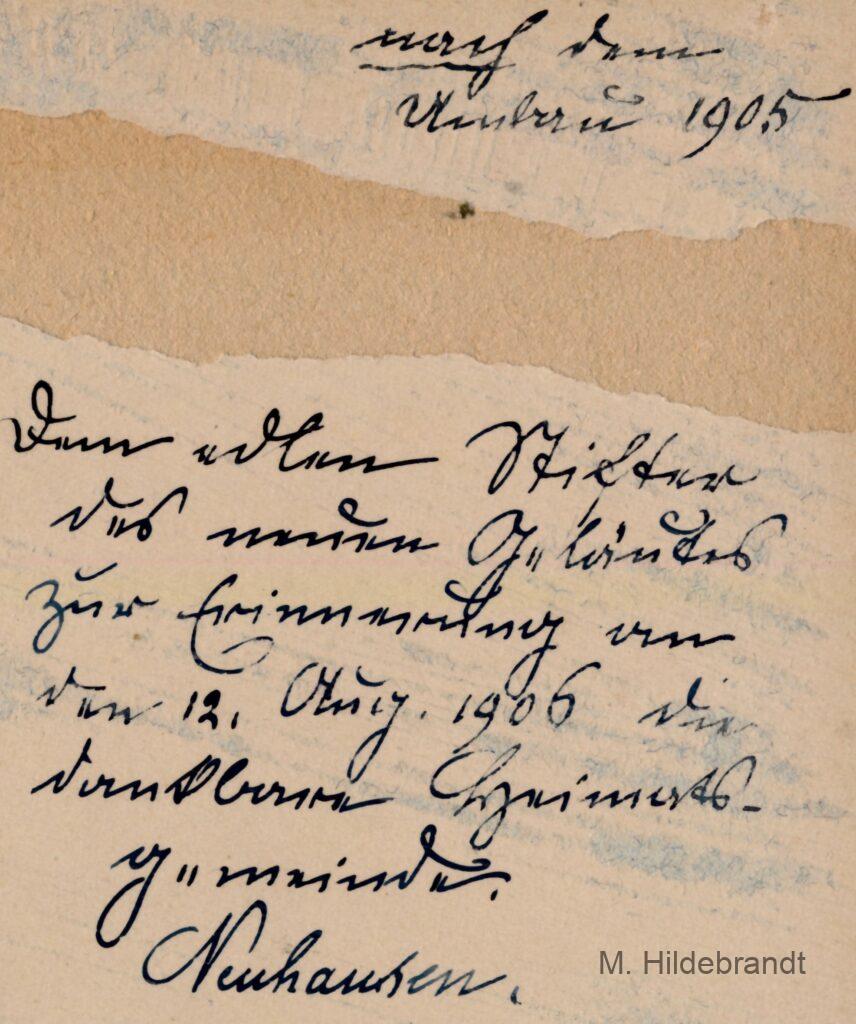 nach dem
Umbau 1905
Dem edlen Stifter
des neuen Geläutes
zur Erinnerung an
den 12. Aug. 1906 die
dankbare Heimats-
gemeinde.
Neuhausen.
M. Hildebrandt